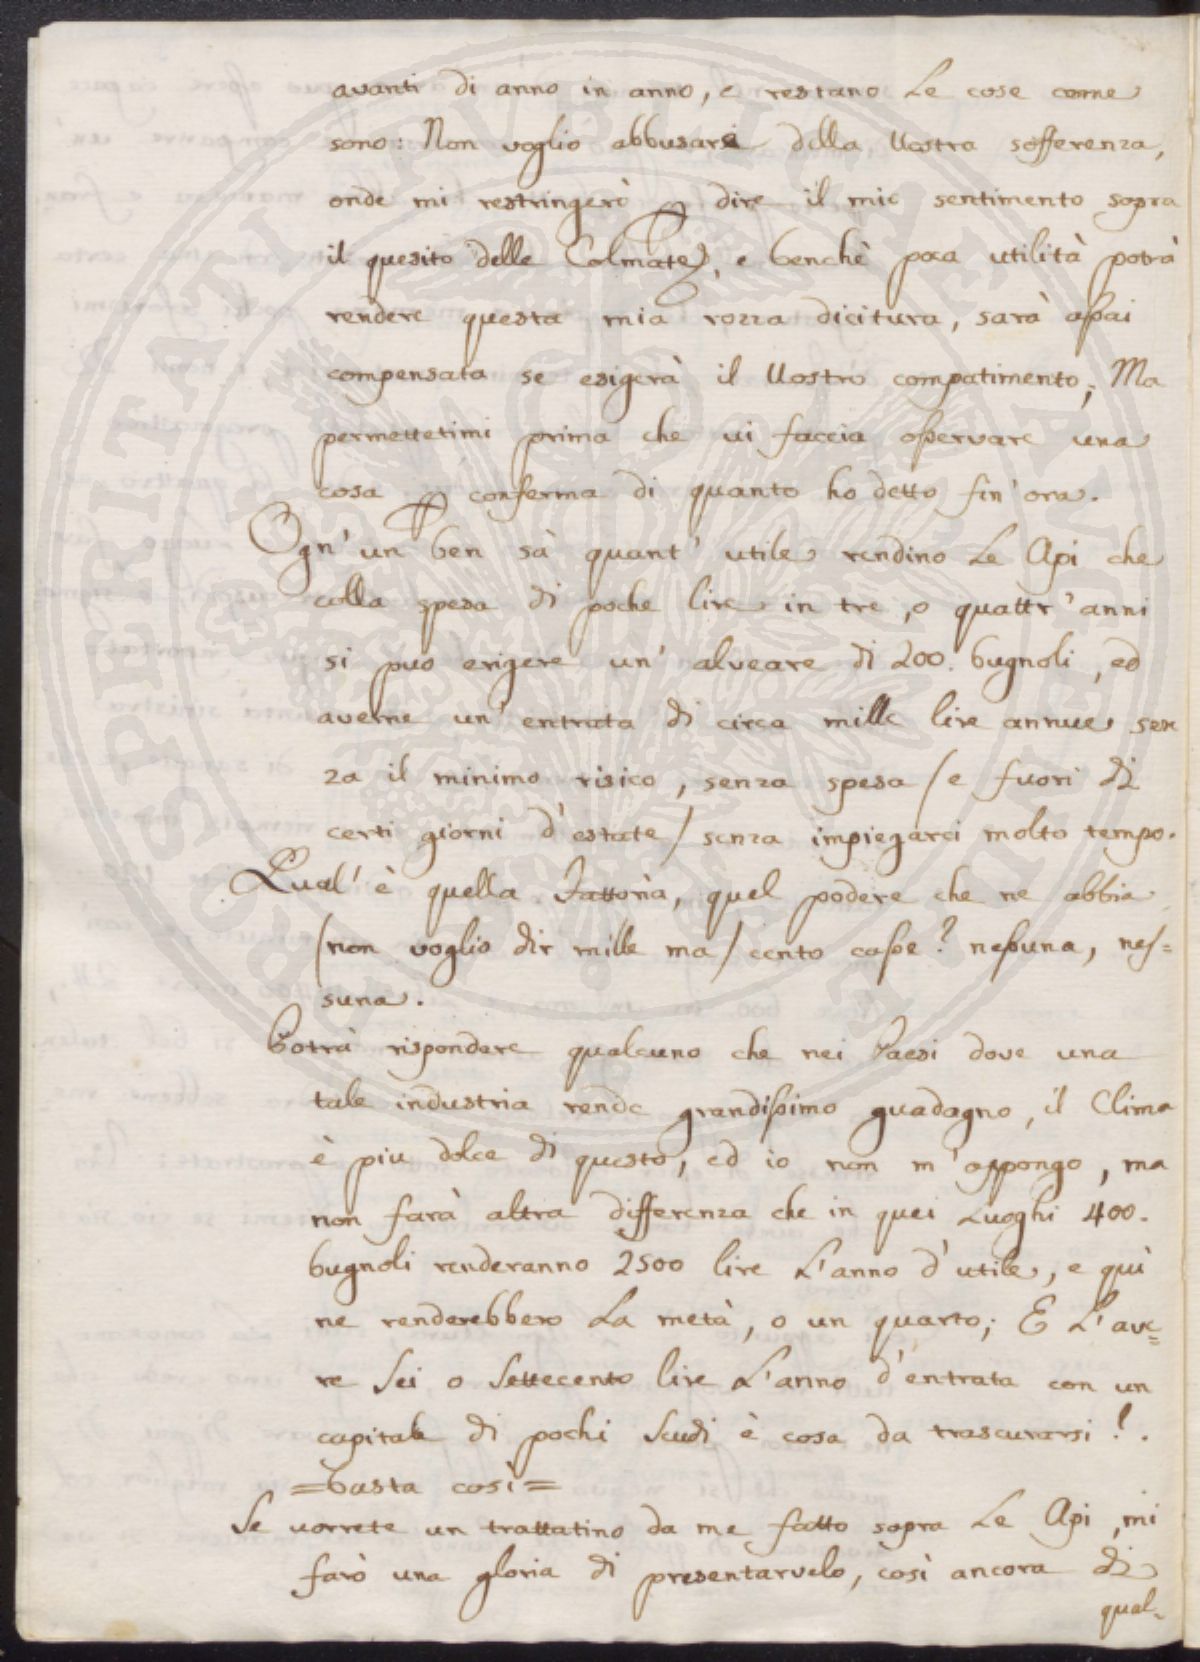 avanti di anno in anno, e restano Le cose come
sono: Non voglio abbusarsi della Vostra sofferenza,
onde mi restringerò p dire il mio sentimento sopra
il quesito delle Colmate, e benchè poca utilità potrà
rendere questa mia rozza dicitura, sarà assai
compensata se esigerà il Vostro compatimento; Ma
permettetimi prima che vi faccia osservare una
cosa p conferma di quanto ho detto fin'ora.
Ogn'un ben sà quant'utile rendino Le Api che
colla spesa di poche lire in tre, o quattr'anni
si può erigere un'alveare di 200. bugnoli, ed
averne un'entrata di circa mille lire annue sen
za il minimo risico, senza spesa /e fuori di
certi giorni d'estate/ senza impiegarci molto tempo.
Qual'è quella Fattoria, quel podere che ne abbia
/non voglio dir mille ma/ cento casse? nessuna, nes=
suna.
Potrà rispondere qualcuno che nei Paesi dove una
tale industria rende grandissimo guadagno, il Clima
è più dolce di questo, ed io non m'oppongo, ma
non farà altra differenza che in quei Luoghi 400.
bugnoli renderanno 2500 lire L'anno d'utile, e quì
ne renderebbero La metà, o un quarto; E L'ave=
re Sei o Settecento lire L'anno d'entrata con un
capitale di pochi Scudi è cosa da trascurarsi?.
=basta così=
Se vorrete un trattatino da me fatto sopra Le Api, mi
farò una gloria di presentarvelo, così ancora di
qual=
PROSPERITATI PUBLICAE AUGENDAE